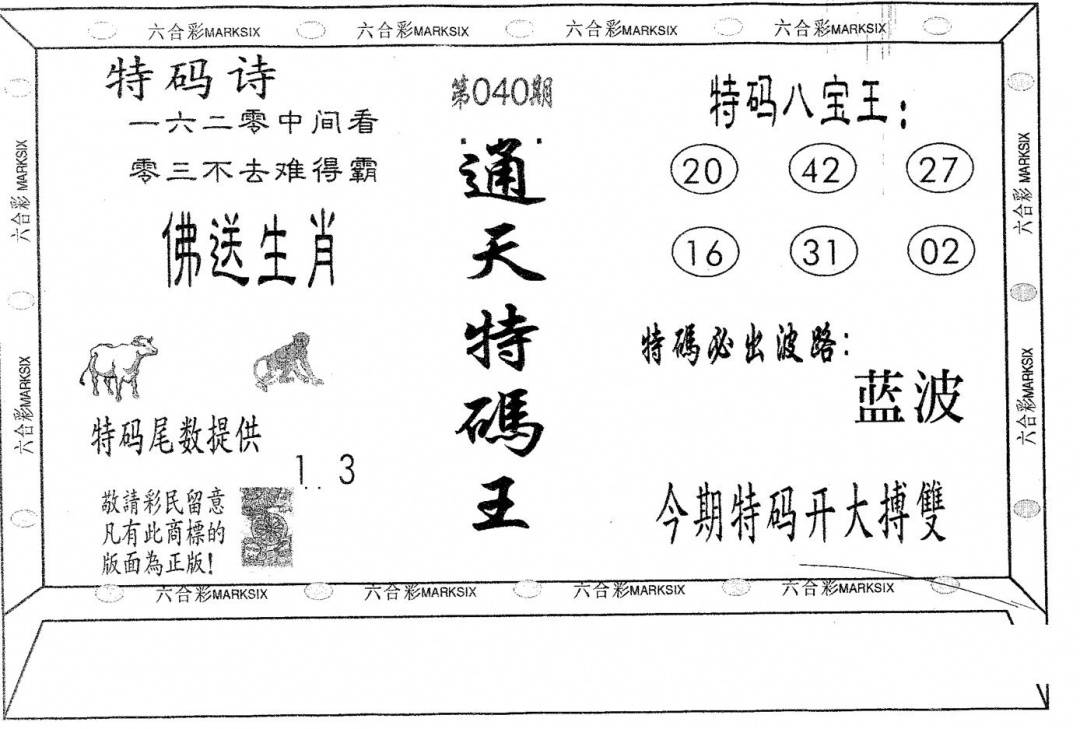 六合彩MARKSIX 六合彩MARKSIX 六合彩MARKSIX 六合彩MARKSIX
六合彩 MARKSIX
六合彩MARKSIX
特码诗
一六二零中间看
零三不去难得霸
佛送生肖
特码尾数提供
1..3
敬請彩民留意
凡有此商標的
版面為正版!
第040期
通天特碼王
特码八宝王:
20 42 27
16 31 02
特碼必出波路:
蓝波
今期特码开大搏雙
六合彩 MARKSIX
六合彩MARKSIX
六合彩MARKSIX 六合彩MARKSIX 六合彩MARKSIX 六合彩MARKSIX